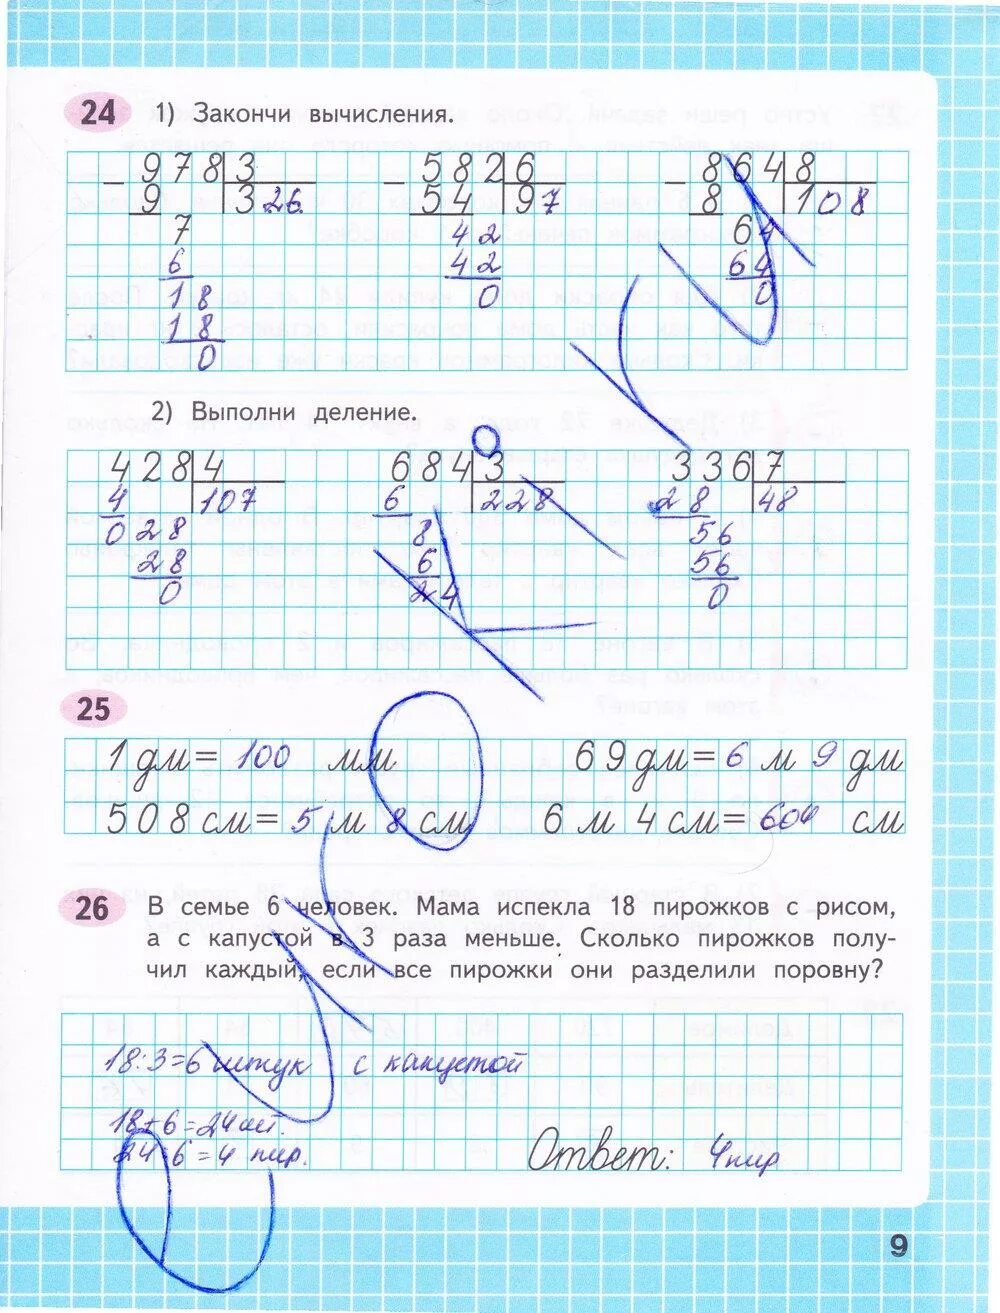 24 1) Закончи вычисления.
978|3 582|6 864|8
9 326 54 97 8 108
7 42 64
6 42 64
18 0 0
18
0
2) Выполни деление.
428|4 684|3 336|7
4 107 6 228 28 48
028 8 56
28 6 56
0 24 0
25
1 дм = 100 мм 69 дм = 6 м 9 дм
508 см = 5 м 8 см 6 м 4 см = 604 см
26 В семье 6 человек. Мама испекла 18 пирожков с рисом,
а с капустой в 3 раза меньше. Сколько пирожков полу-
чил каждый, если все пирожки они разделили поровну?
18:3=6 штук с капустой
18+6=24 шт.
24:6=4 пир.
Ответ: 4 пир
9